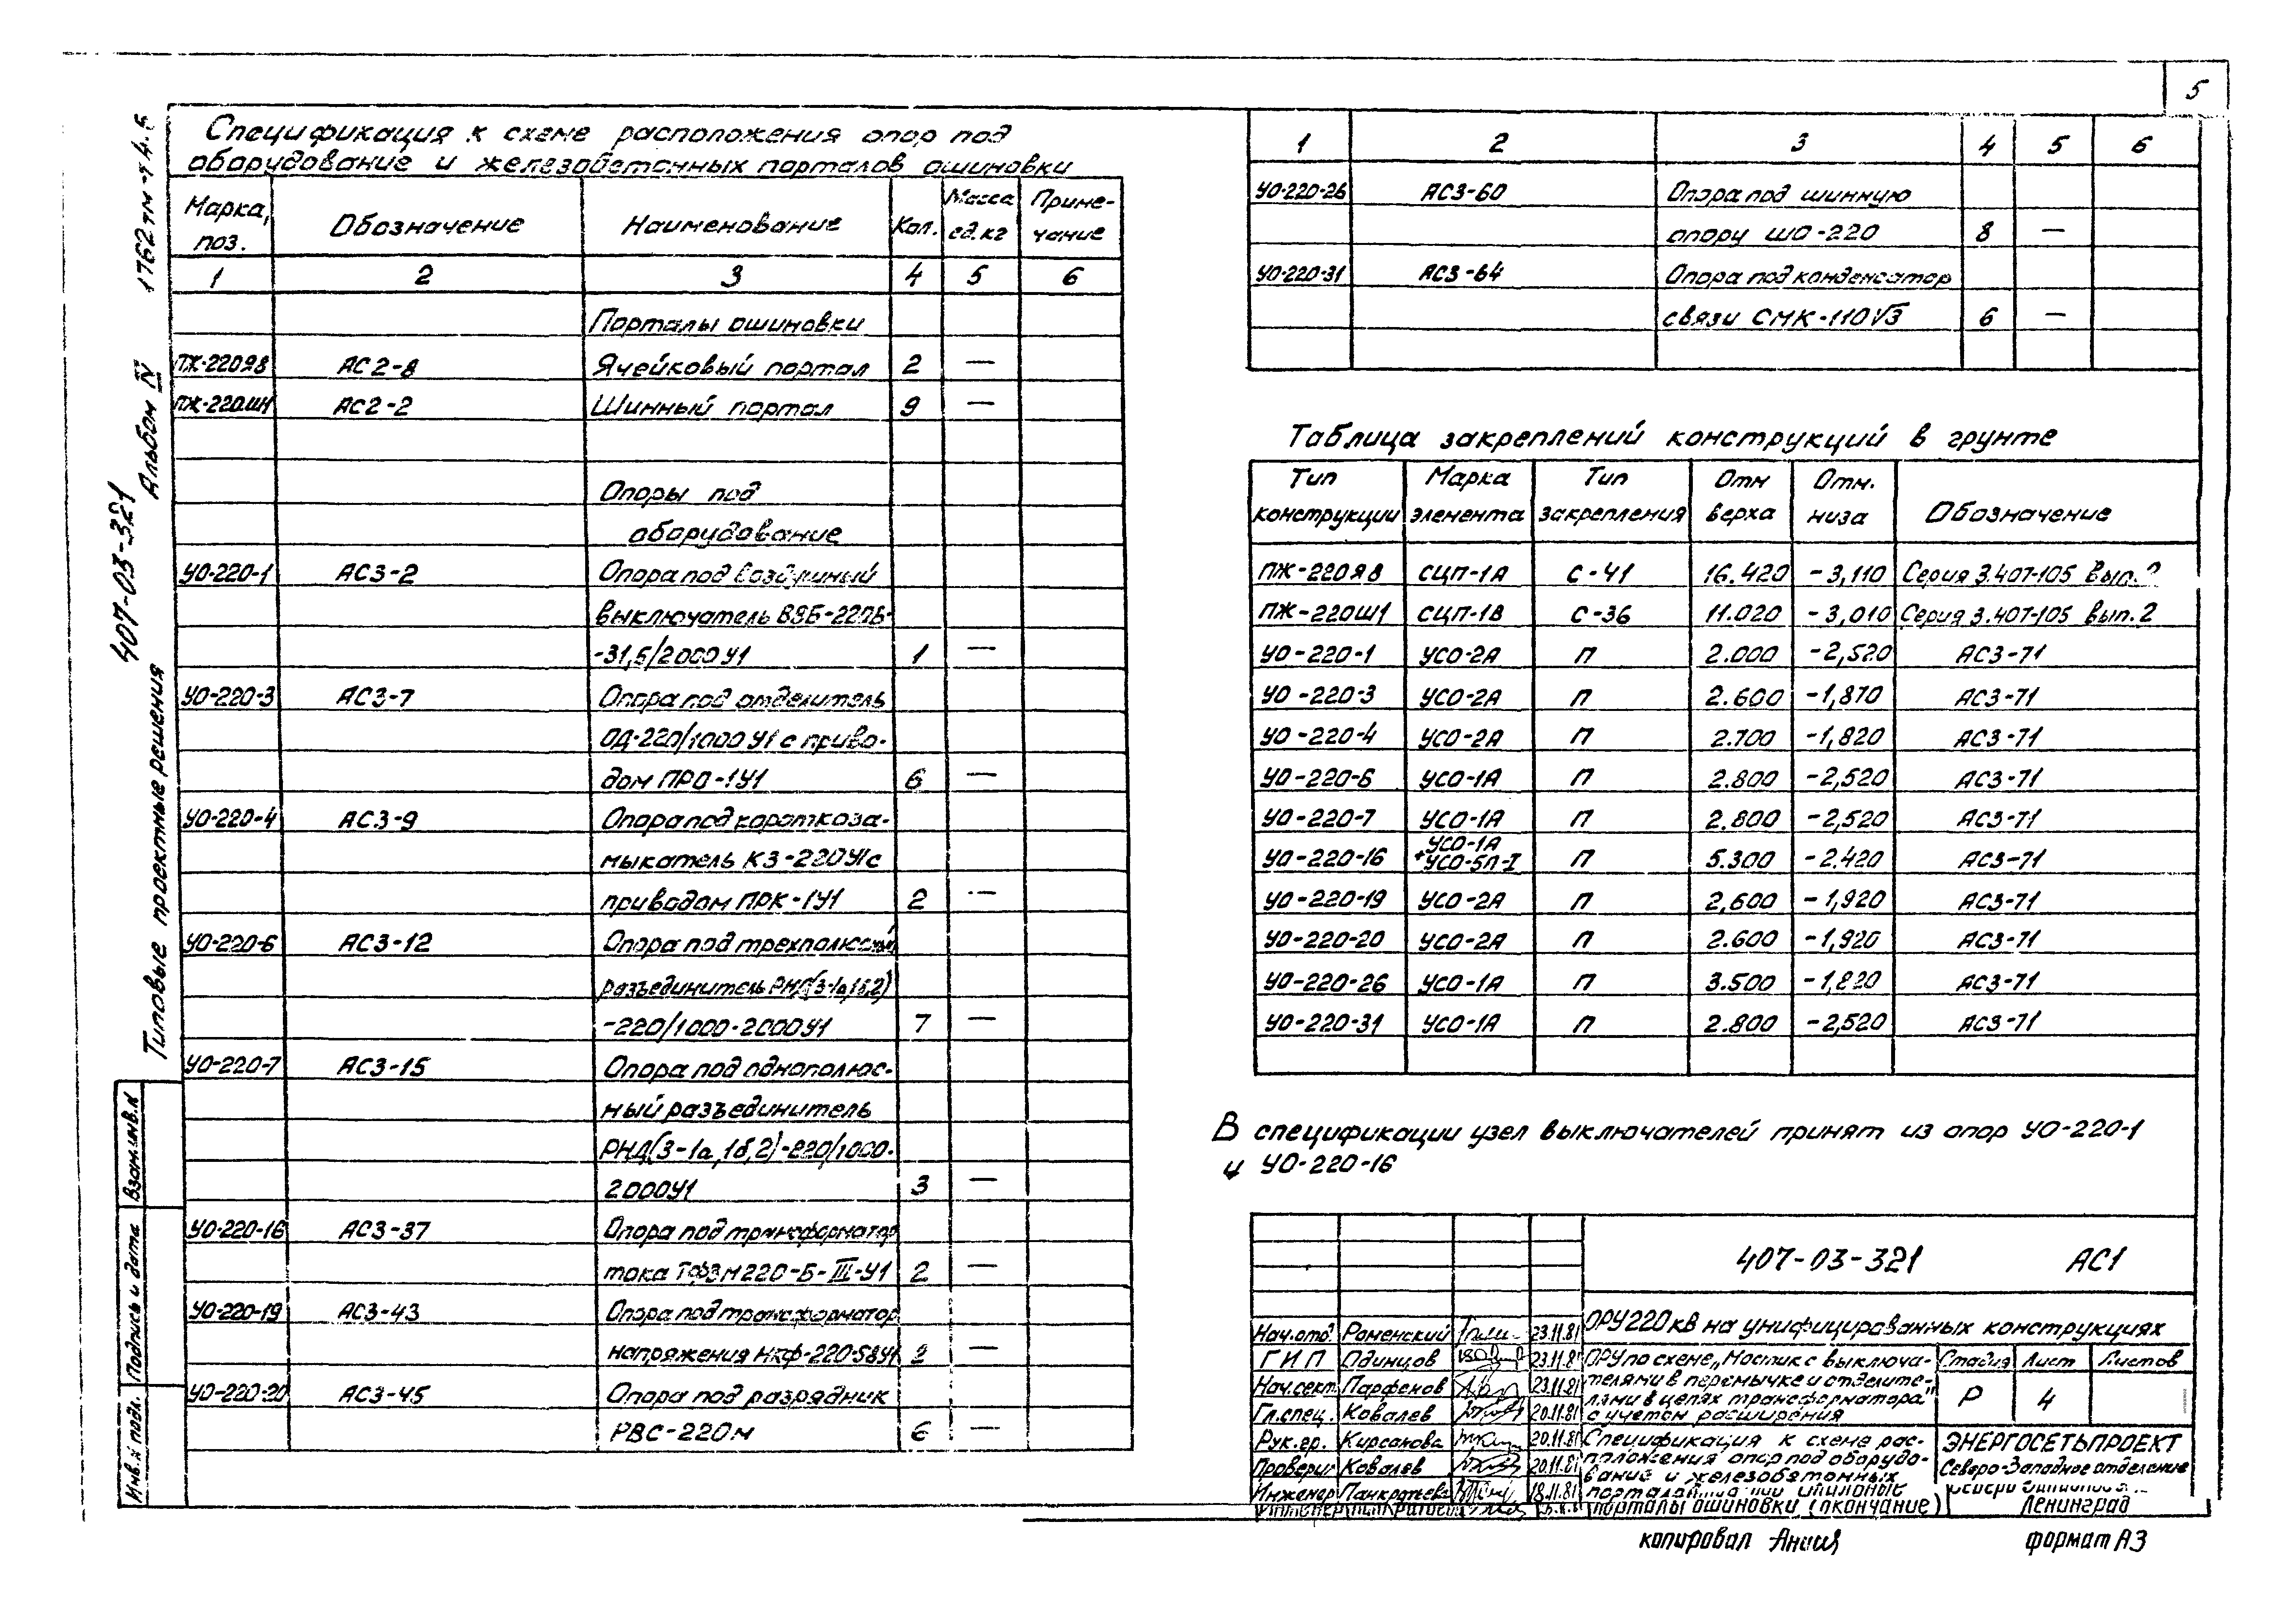 5
1762тм-т4.5
Альбом IV
407-03-321
Типовые проектные решения
Взам.инв.N
Подпись и дата
Инв.N подл.
Спецификация к схеме расположения опор под
оборудование и железобетонных порталов ошиновки
Марка, поз. Обозначение Наименование Кол. Масса ед.кг Приме-чание
1 2 3 4 5 6
Порталы ошиновки
ПЖ-220Я8 АС2-8 Ячейковый портал 2 —
ПЖ-220Ш1 АС2-2 Шинный портал 9 —
Опоры под
оборудование
УО-220-1 АС3-2 Опора под воздушный
выключатель ВВБ-220Б-
-31,5/2000У1 1 —
УО-220-3 АС3-7 Опора под отделитель
ОД-220/1000У1 с приво-
дом ПРО-1У1 6 —
УО-220-4 АС3-9 Опора под короткоза-
мыкатель КЗ-220У1 с
приводом ПРК-1У1 2 —
УО-220-6 АС3-12 Опора под трехполюсный
разъединитель РНД(З-1а,1б,2)
-220/1000-2000У1 7 —
УО-220-7 АС3-15 Опора под однополюс-
ный разъединитель
РНД(З-1а,1б,2)-220/1000-
2000У1 3 —
УО-220-16 АС3-37 Опора под трансформатор
тока ТФЗМ220-Б-III-У1 2 —
УО-220-19 АС3-43 Опора под трансформатор
напряжения НКФ-220-58У1 2 —
УО-220-20 АС3-45 Опора под разрядник
РВС-220м 6 —
1 2 3 4 5 6
УО-220-26 АС3-60 Опора под шинную
опору ШО-220 8 —
УО-220-31 АС3-64 Опора под конденсатор
связи СМК-110√3 6 —
Таблица закреплений конструкций в грунте
Тип конструкции Марка элемента Тип закрепления Отм верха Отм. низа Обозначение
ПЖ-220Я8 СЦП-1А С-41 16.420 -3,110 Серия 3.407-105 Вып.2
ПЖ-220Ш1 СЦП-1В С-36 11.020 -3,010 Серия 3.407-105 Вып.2
УО-220-1 УСО-2А П 2.000 -2,520 АС3-71
УО-220-3 УСО-2А П 2.600 -1,870 АС3-71
УО-220-4 УСО-2А П 2.700 -1,820 АС3-71
УО-220-6 УСО-1А П 2.800 -2,520 АС3-71
УО-220-7 УСО-1А П 2.800 -2,520 АС3-71
УО-220-16 УСО-1А +УСО-5П-I П 5.300 -2.420 АС3-71
УО-220-19 УСО-2А П 2,600 -1,920 АС3-71
УО-220-20 УСО-2А П 2.600 -1,920 АС3-71
УО-220-26 УСО-1А П 3.500 -1,820 АС3-71
УО-220-31 УСО-1А П 2.800 -2,520 АС3-71
В спецификации узел выключателей принят из опор УО-220-1
и УО-220-16
407-03-321 АС1
ОРУ220кВ на унифицированных конструкциях
Нач.отд. Роменский 23.11.81
ГИП Одинцов 23.11.81
Нач.сект Парфенов 23.11.81
Гл.спец. Ковалев 20.11.81
Рук.гр. Кирсанова 20.11.81
Проверил Ковалев 20.11.81
Инженер Панкратьева 18.11.81
ОРУ по схеме „Мостик с выключа-
телями в перемычке и отделите-
лями в цепях трансформатора"
с учетом расширения
Стадия Лист Листов
Р 4
Спецификация к схеме рас-
положения опор под оборудо-
вание и железобетонных
порталы ошиновки (окончание)
ЭНЕРГОСЕТЬПРОЕКТ
Северо-Западное отделение
Ленинград
копировал
формат А3